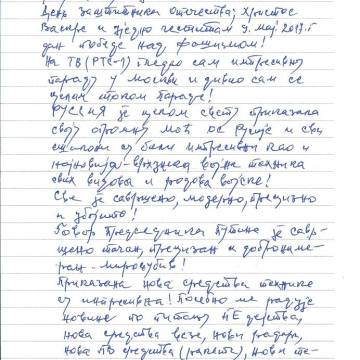 День заштитника отачества; Христос
Васкре и уједно честитам 9. мај 2017. г
дан победе над фашизмом!
На ТВ (РТС-1) гледао сам
параду у Москви и дивио сам се
целим током параде!
РУССИЯ је целом свету приказала
своју огромну моћ
су били импресивни као и
најновија - врхунска војна техника
свих видова и родова војске!
Све је савршено, модерно, прецизно
и убојито!
Говор Председника Путина је савр-
шено тачан, прецизан и добронаме-
ран - мирољубив!
Приказана нова средства технике
су импресивна! Посебно ме радује
новине по питању ПЕ дејства,
нова средства везе, нови радари,
нова ПВ средства (ракете), нови те-